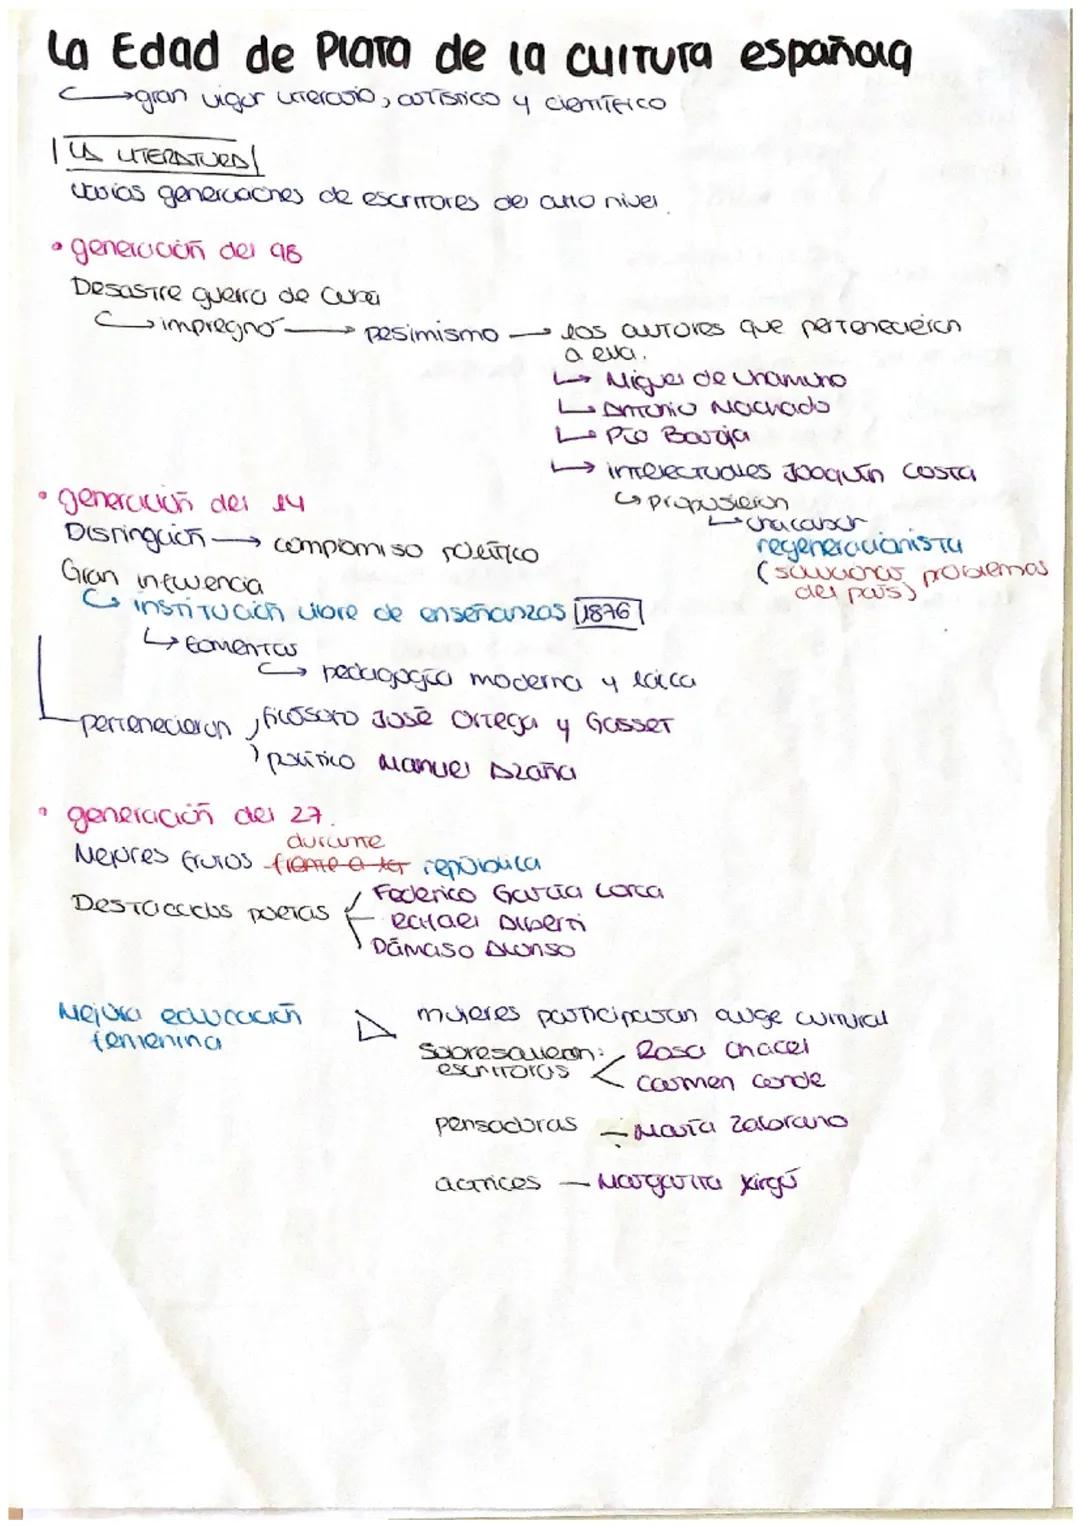 La Edad de Plata de la cultura española
gran vigor literario, artístico y científico
LA LITERATURA
Varias generaciones de escritores de alto nivel.
• generación del 98
Desastre guerra de Cuba
impregnó → pesimismo → los autores que pertenecieron
a ella.
↳ Miguel de Unamuno
↳ Antonio Machado
↳ Pío Baroja
↳ intelectuales Joaquín Costa
↳ propusieron
↳ una labor
regeneracionista
(solucionar problemas
del país)
• generación del 14
Distinguión → compromiso político
Gran influencia
↳ institución libre de enseñanzas 1876
↳ fomentas
↳ pedagogía moderna y laica
pertenecieron filósofo José Ortega y Gasset
político Manuel Azaña
• generación del 27.
durante
Mejores frutos frente a la república
Destacados poetas Federico García Lorca
Rafael Alberti
Dámaso Alonso
Mejora educación femenina
mujeres participaran auge cultural
Sobresalieron: Rosa Chacel
escritoras Carmen Conde
pensadoras – María Zabrano
actrices – Margarita Xirgú